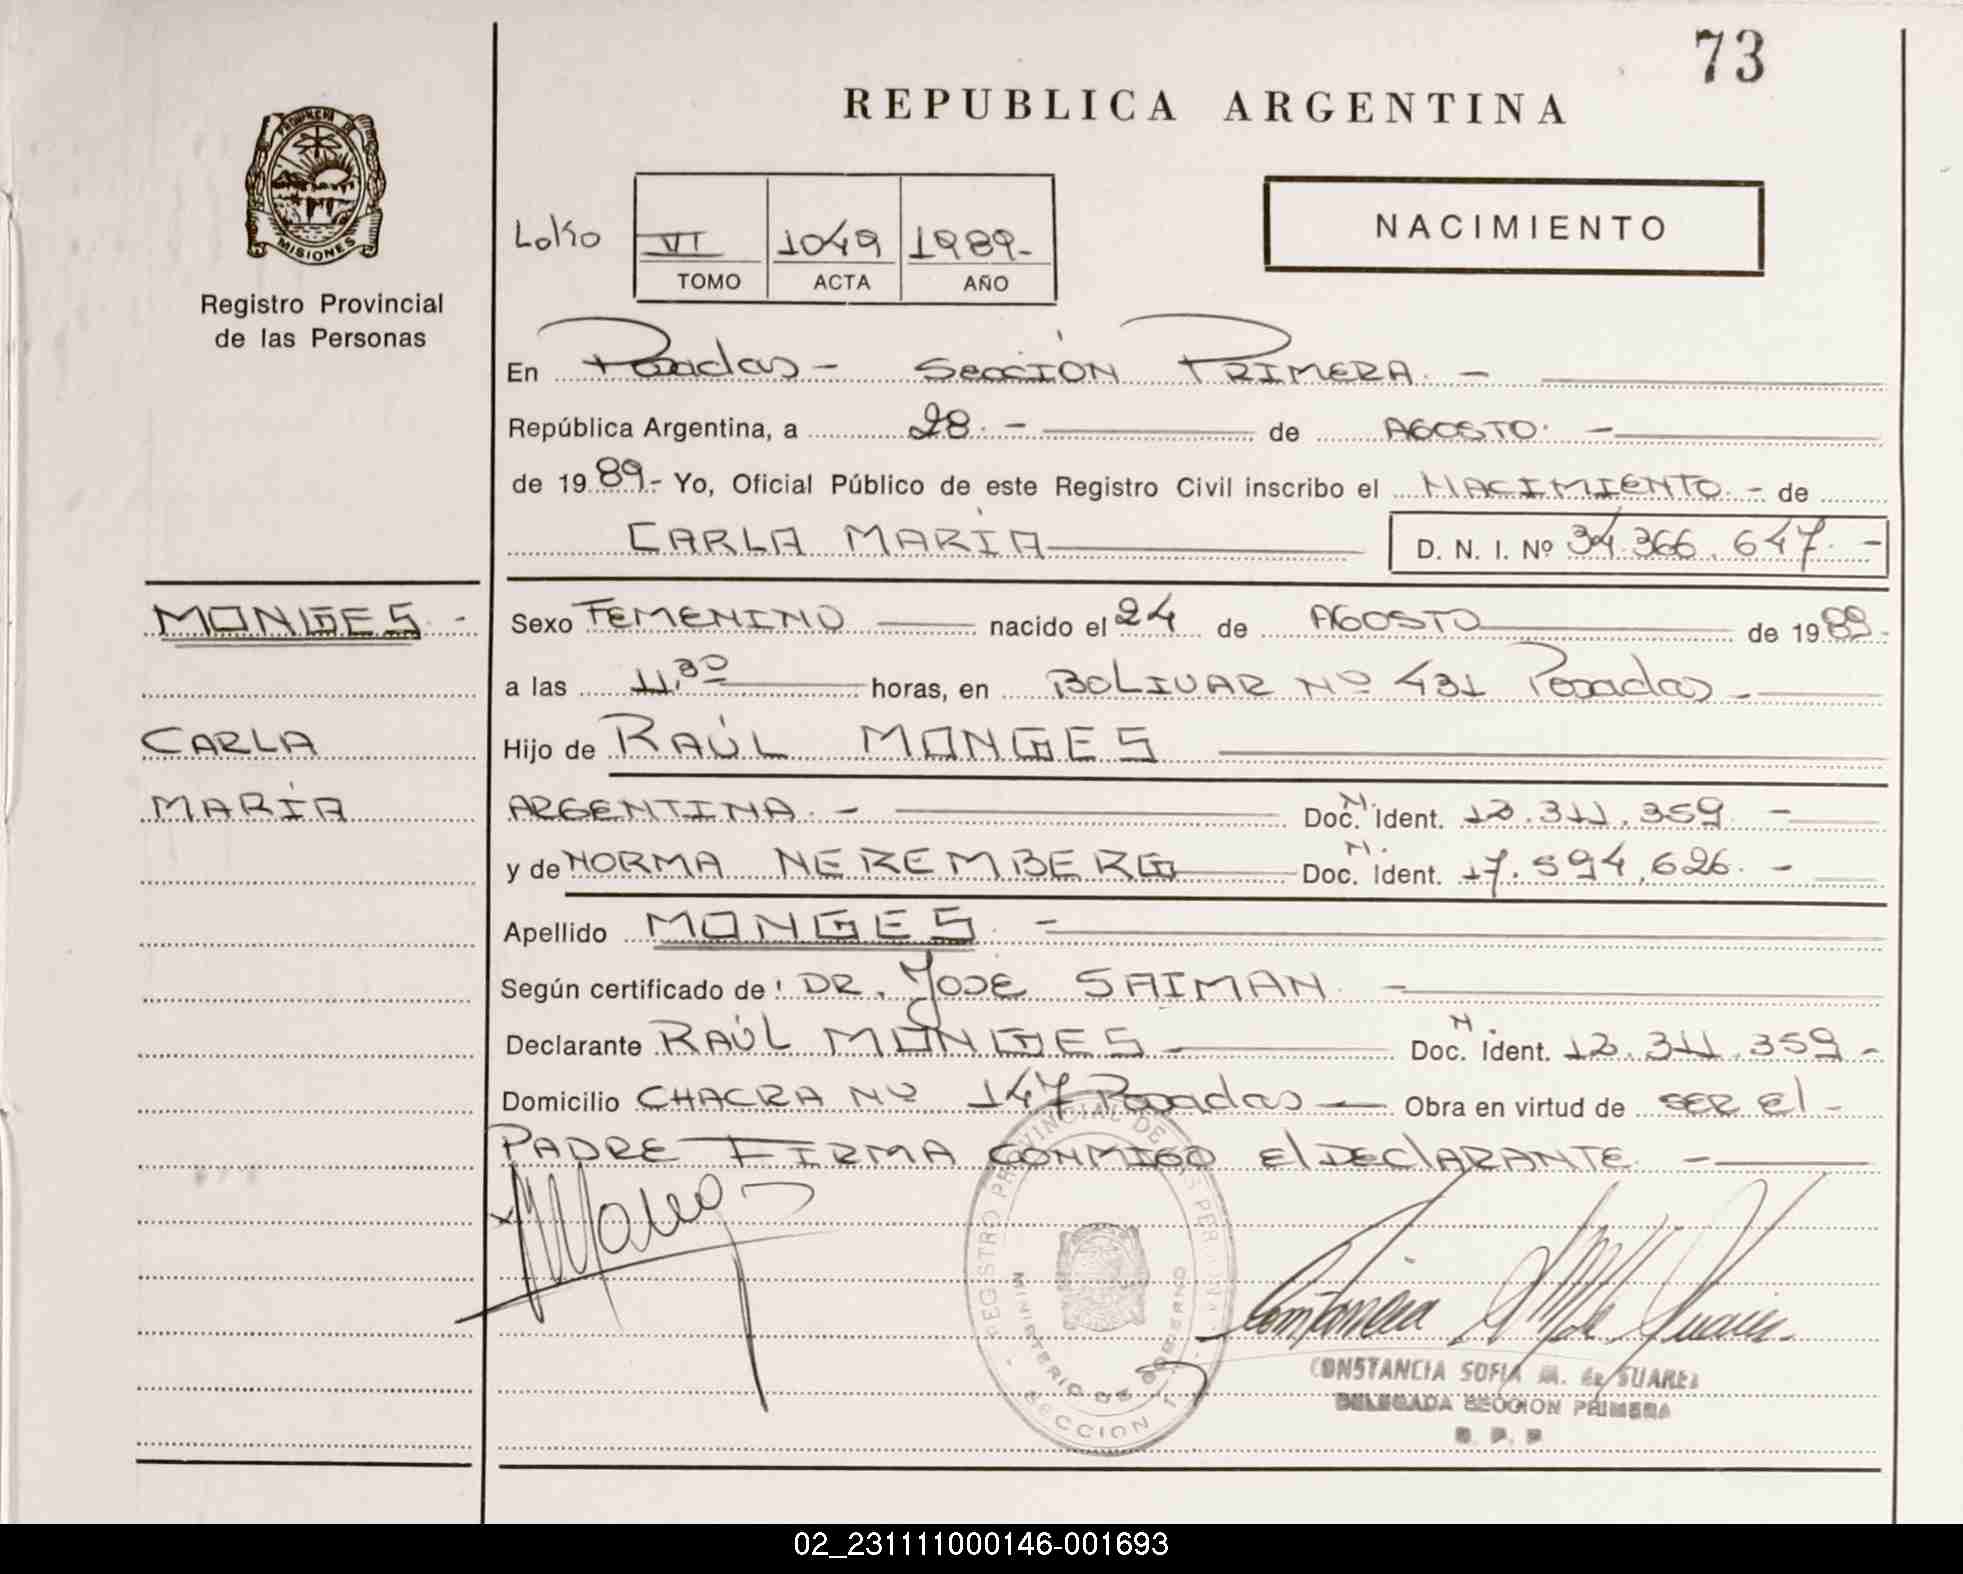 73
REPUBLICA ARGENTINA
PROVINCIA DE MISIONES
Registro Provincial
de las Personas
NACIMIENTO
VI 1049 1989-
TOMO ACTA AÑO
En Posadas - Sección PRIMERA. -
República Argentina, a 28. - de AGOSTO. -
de 1989.- Yo, Oficial Público de este Registro Civil inscribo el NACIMIENTO. - de
CARLA MARÍA D. N. I. Nº 34.366.647. -
MONGES - Sexo FEMENINO nacido el 24 de AGOSTO de 1989.
a las 11,30 horas, en BOLIVAR Nº 431 Posadas -
CARLA Hijo de RAÚL MONGES
MARÍA ARGENTINA. - Doc. N. Ident. 12.311.359. -
y de NORMA NEREMBERG Doc. N. Ident. 17.594.626. -
Apellido MONGES. -
Según certificado de: DR. JOSE SAIMAN. -
Declarante RAÚL MONGES - Doc. N. Ident. 12.311.359 -
Domicilio CHACRA Nº 147 Posadas - Obra en virtud de SER El -
PADRE FIRMA CONMIGO El DECLARANTE. -
REGISTRO PROVINCIAL DE LAS PERSONAS
MINISTERIO DE GOBIERNO
SECCION 1
CONSTANCIA SOFIA M. de SUAREZ
DELEGADA SECCION PRIMERA
R. P. P.
02_231111000146-001693